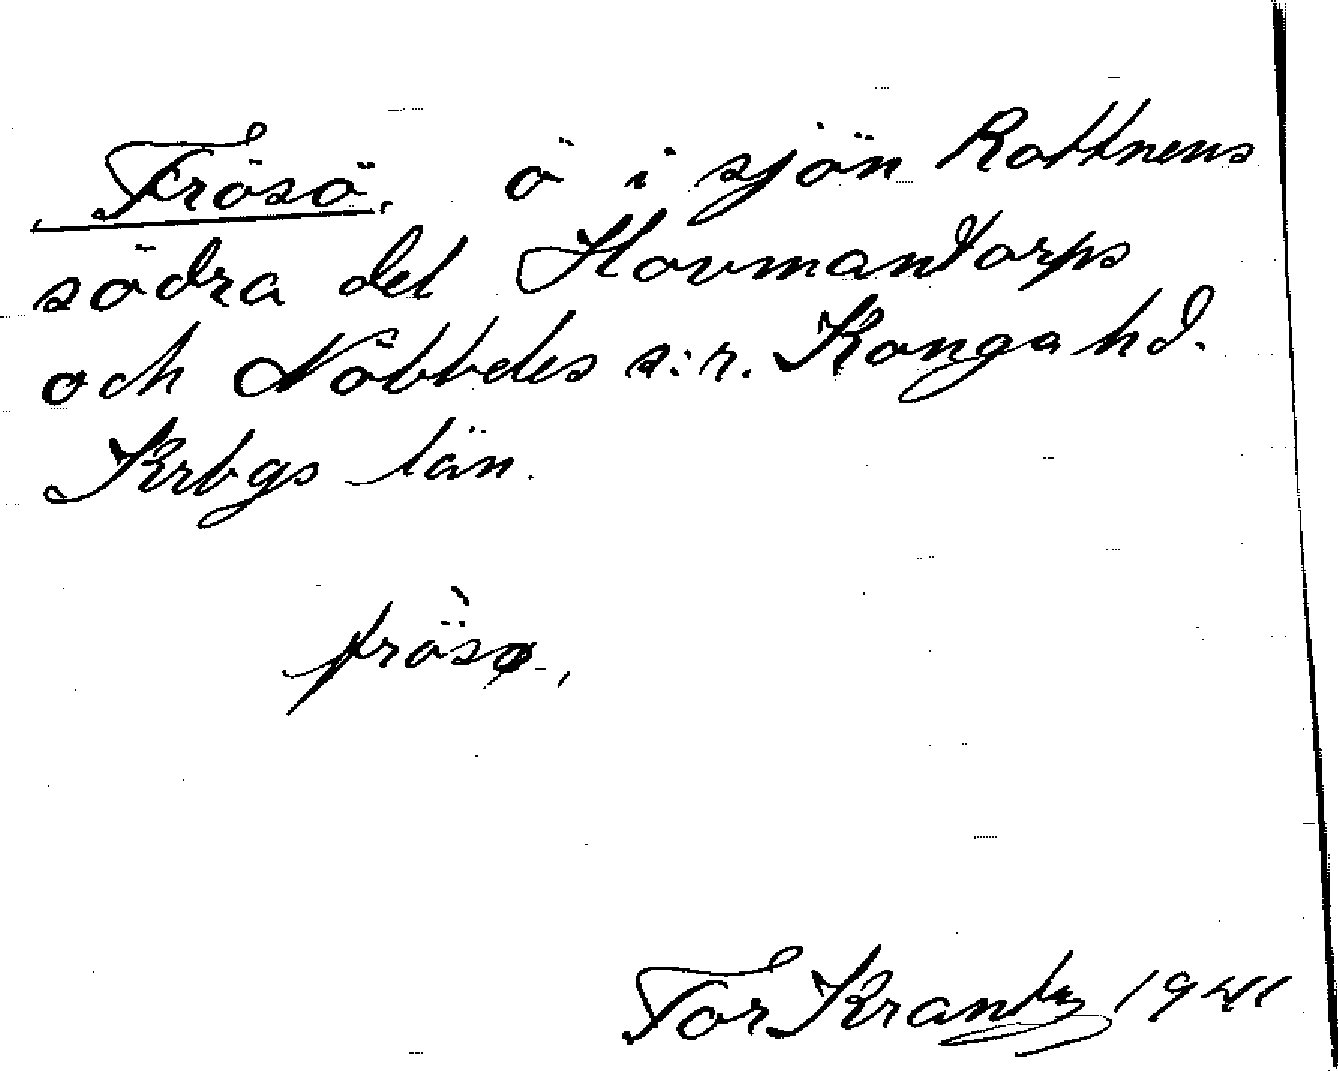 Frösö. ö i sjön Rottnens
södra del Hovmantorps
och Nöbbeles s:r. Konga hd.
Krbgs län.
frösø,
Tor Krantz 1941